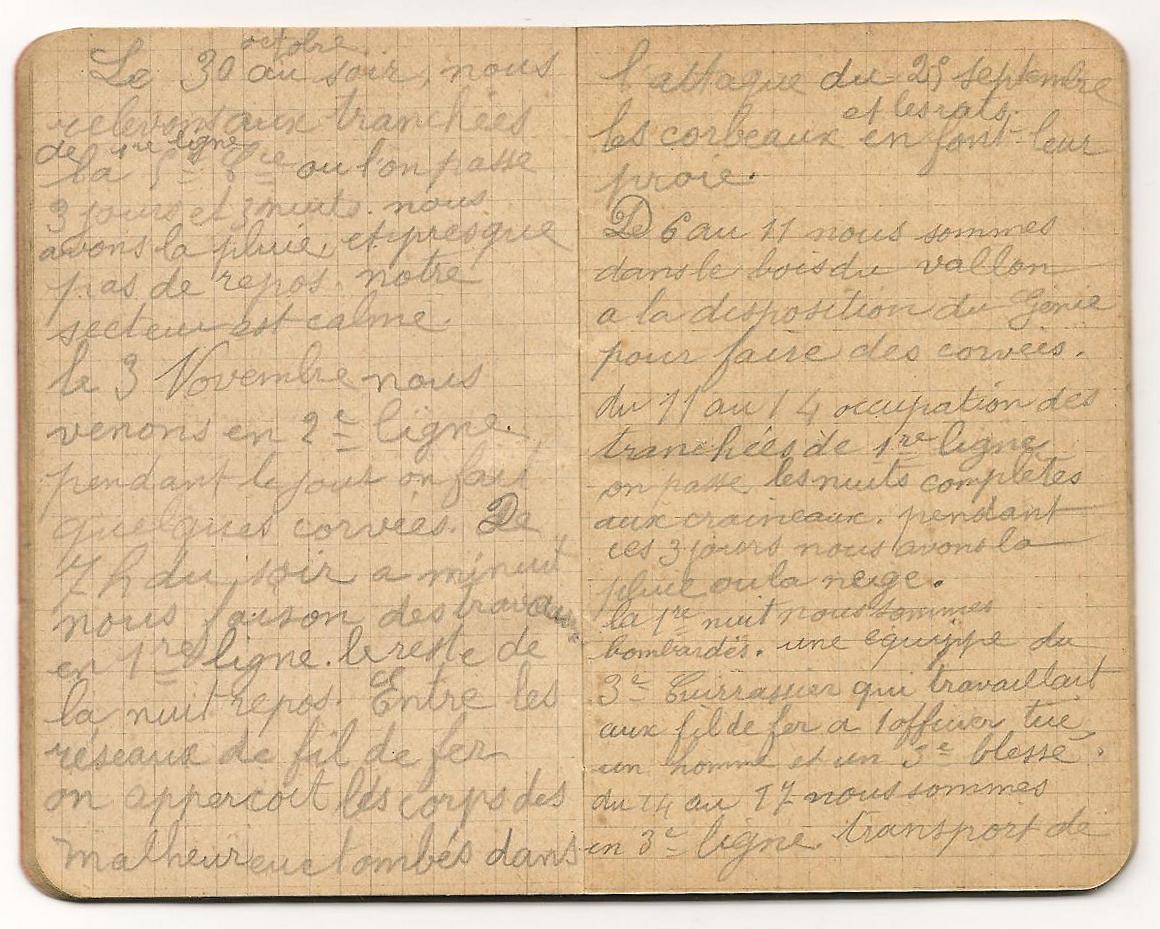 octobre
Le 30 au soir, nous
relevons aux tranchées
de 1re ligne
la 5e Cie ou l'on passe
3 jours et 3 nuits. nous
avons la pluie, et presque
pas de repos. notre
secteur est calme.
le 3 Novembre nous
venons en 2e ligne.
pendant le jour on fait
quelques corvées. De
7 h du soir a minuit
nous faison des travaux
en 1re ligne. le reste de
la nuit repos. Entre les
réseaux de fil de fer
on appercoit les corps des
malheureux tombés dans
l'attaque du 25 septembre
et les rats
les corbeaux en font leur
proie.
De 6 au 11 nous sommes
dans le bois du vallon
a la disposition du Génie
pour faire des corvées.
du 11 au 14 occupation des
tranchées de 1re ligne
on passe les nuits complètes
aux craineaux. pendant
ces 3 jours nous avons la
pluie ou la neige.
la 1re nuit nous sommes
bombardés. une equippe du
3e Cuirrassier qui travaillait
aux fil de fer a 1 officier tué,
un homme et un 3e blessé.
du 14 au 17 nous sommes
en 3e ligne transport de